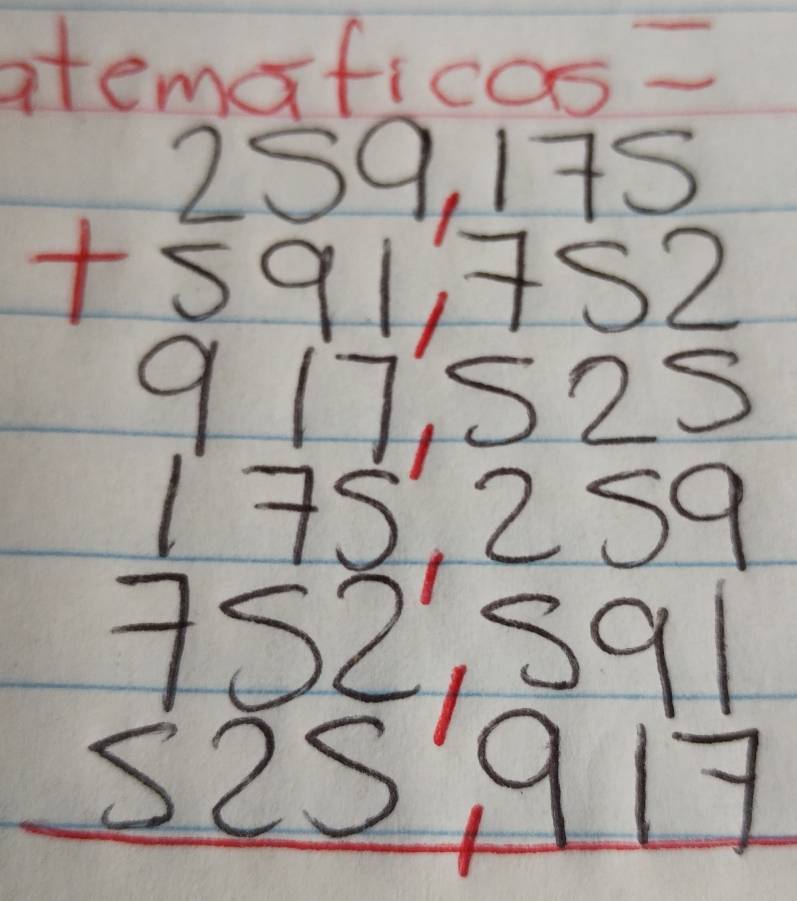 atematicas=
259,175
+ 591,752
917,525
175,259
752,591
525,917